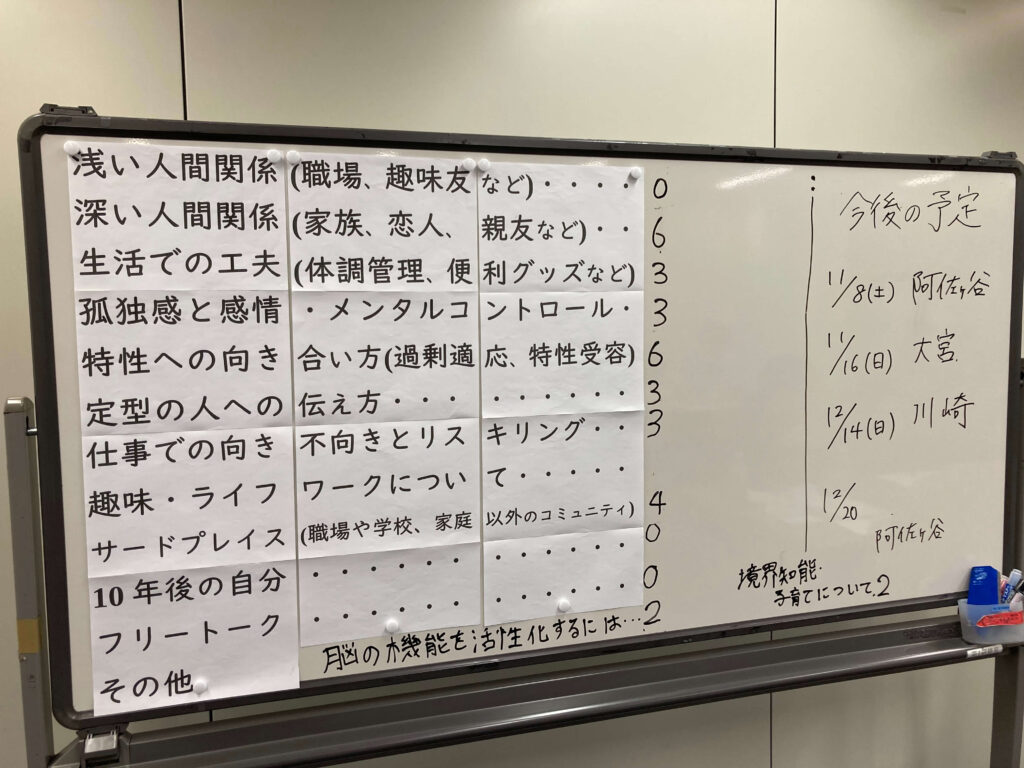 浅い人間関係(職場、趣味友など)・・・・ 0
深い人間関係(家族、恋人、親友など)・・ 6
生活での工夫(体調管理、便利グッズなど) 3
孤独感と感情・メンタルコントロール・ 3
特性への向き合い方(過剰適応、特性受容) 6
定型の人への伝え方・・・・・・・・・ 3
仕事での向き不向きとリスキリング・・ 3
趣味・ライフワークについて・・・・・ 4
サードプレイス(職場や学校、家庭以外のコミュニティ) 0
10年後の自分・・・・・・・・・・・・ 0
フリートーク・・・・・・・・・・・・ 2
その他
脳の機能を活性化するには…
今後の予定
11/8(土) 阿佐ヶ谷
11/16(日) 大宮
12/14(日) 川崎
12/20
阿佐ヶ谷
境界知能・
子育てについて.2